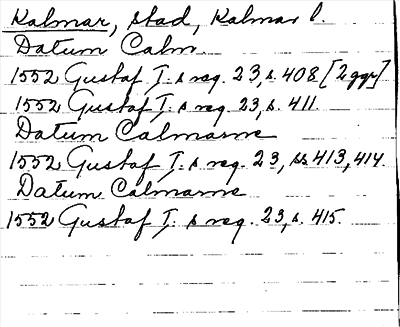 Kalmar, stad, Kalmar l.
Datum Calm.
1552 Gustaf I:s reg. 23, s. 408 [2 ggr]
1552 Gustaf I:s reg. 23, s. 411
Datum Calmarne
1552 Gustaf I:s reg. 23, ss 413, 414.
Datum Calmarne
1552 Gustaf I:s reg. 23, s. 415.